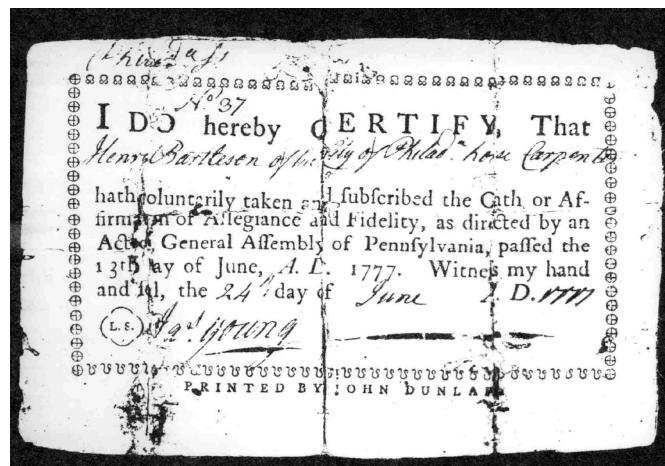 No 37
I DO hereby CERTIFY, That
Henry Bartleson of the City of Philada. house Carpenter
hath voluntarily taken and subſcribed the Oath or Af-
firmation of Allegiance and Fidelity, as directed by an
Act of General Aſſembly of Pennſylvania, paſſed the
13th day of June, A. D. 1777. Witneſs my hand
and ſeal, the 24th day of June A. D. 1777
L. S. Jas. Young
PRINTED BY JOHN DUNLAP